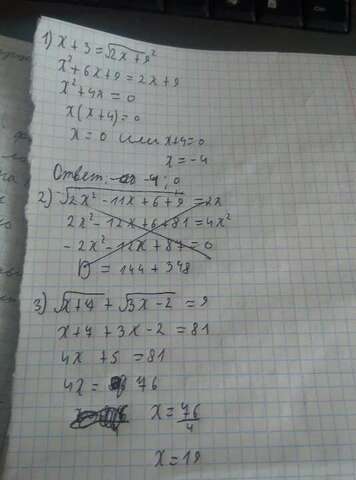 1) x + 3 = √2x + 9²
x² + 6x + 9 = 2x + 9
x² + 4x = 0
x(x+4) = 0
x = 0 или x+4=0
x = -4
Ответ: -4; 0
2) √2x² - 11x + 6 + 9 = 2x
2x² - 12x + 6 + 81 = 4x²
-2x² - 12x + 87 = 0
D = 144 + 348
3) √x+7 + √3x-2 = 9
x + 7 + 3x - 2 = 81
4x + 5 = 81
4x = 76
x = 76/4
x = 19